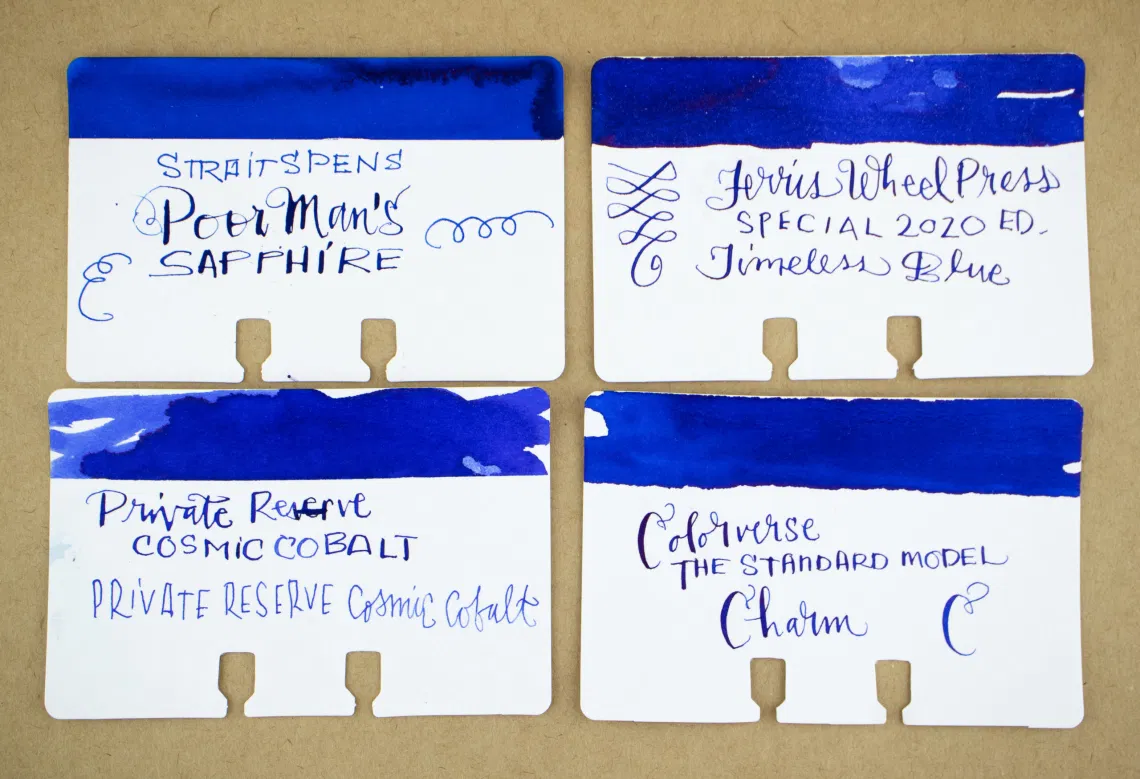 STRAITSPENS
Poor Man's
SAPPHIRE
Ferris Wheel Press
SPECIAL 2020 ED.
Timeless Blue
Private Reserve
COSMIC COBALT
PRIVATE RESERVE Cosmic Cobalt
Colorverse
THE STANDARD MODEL
Charm C